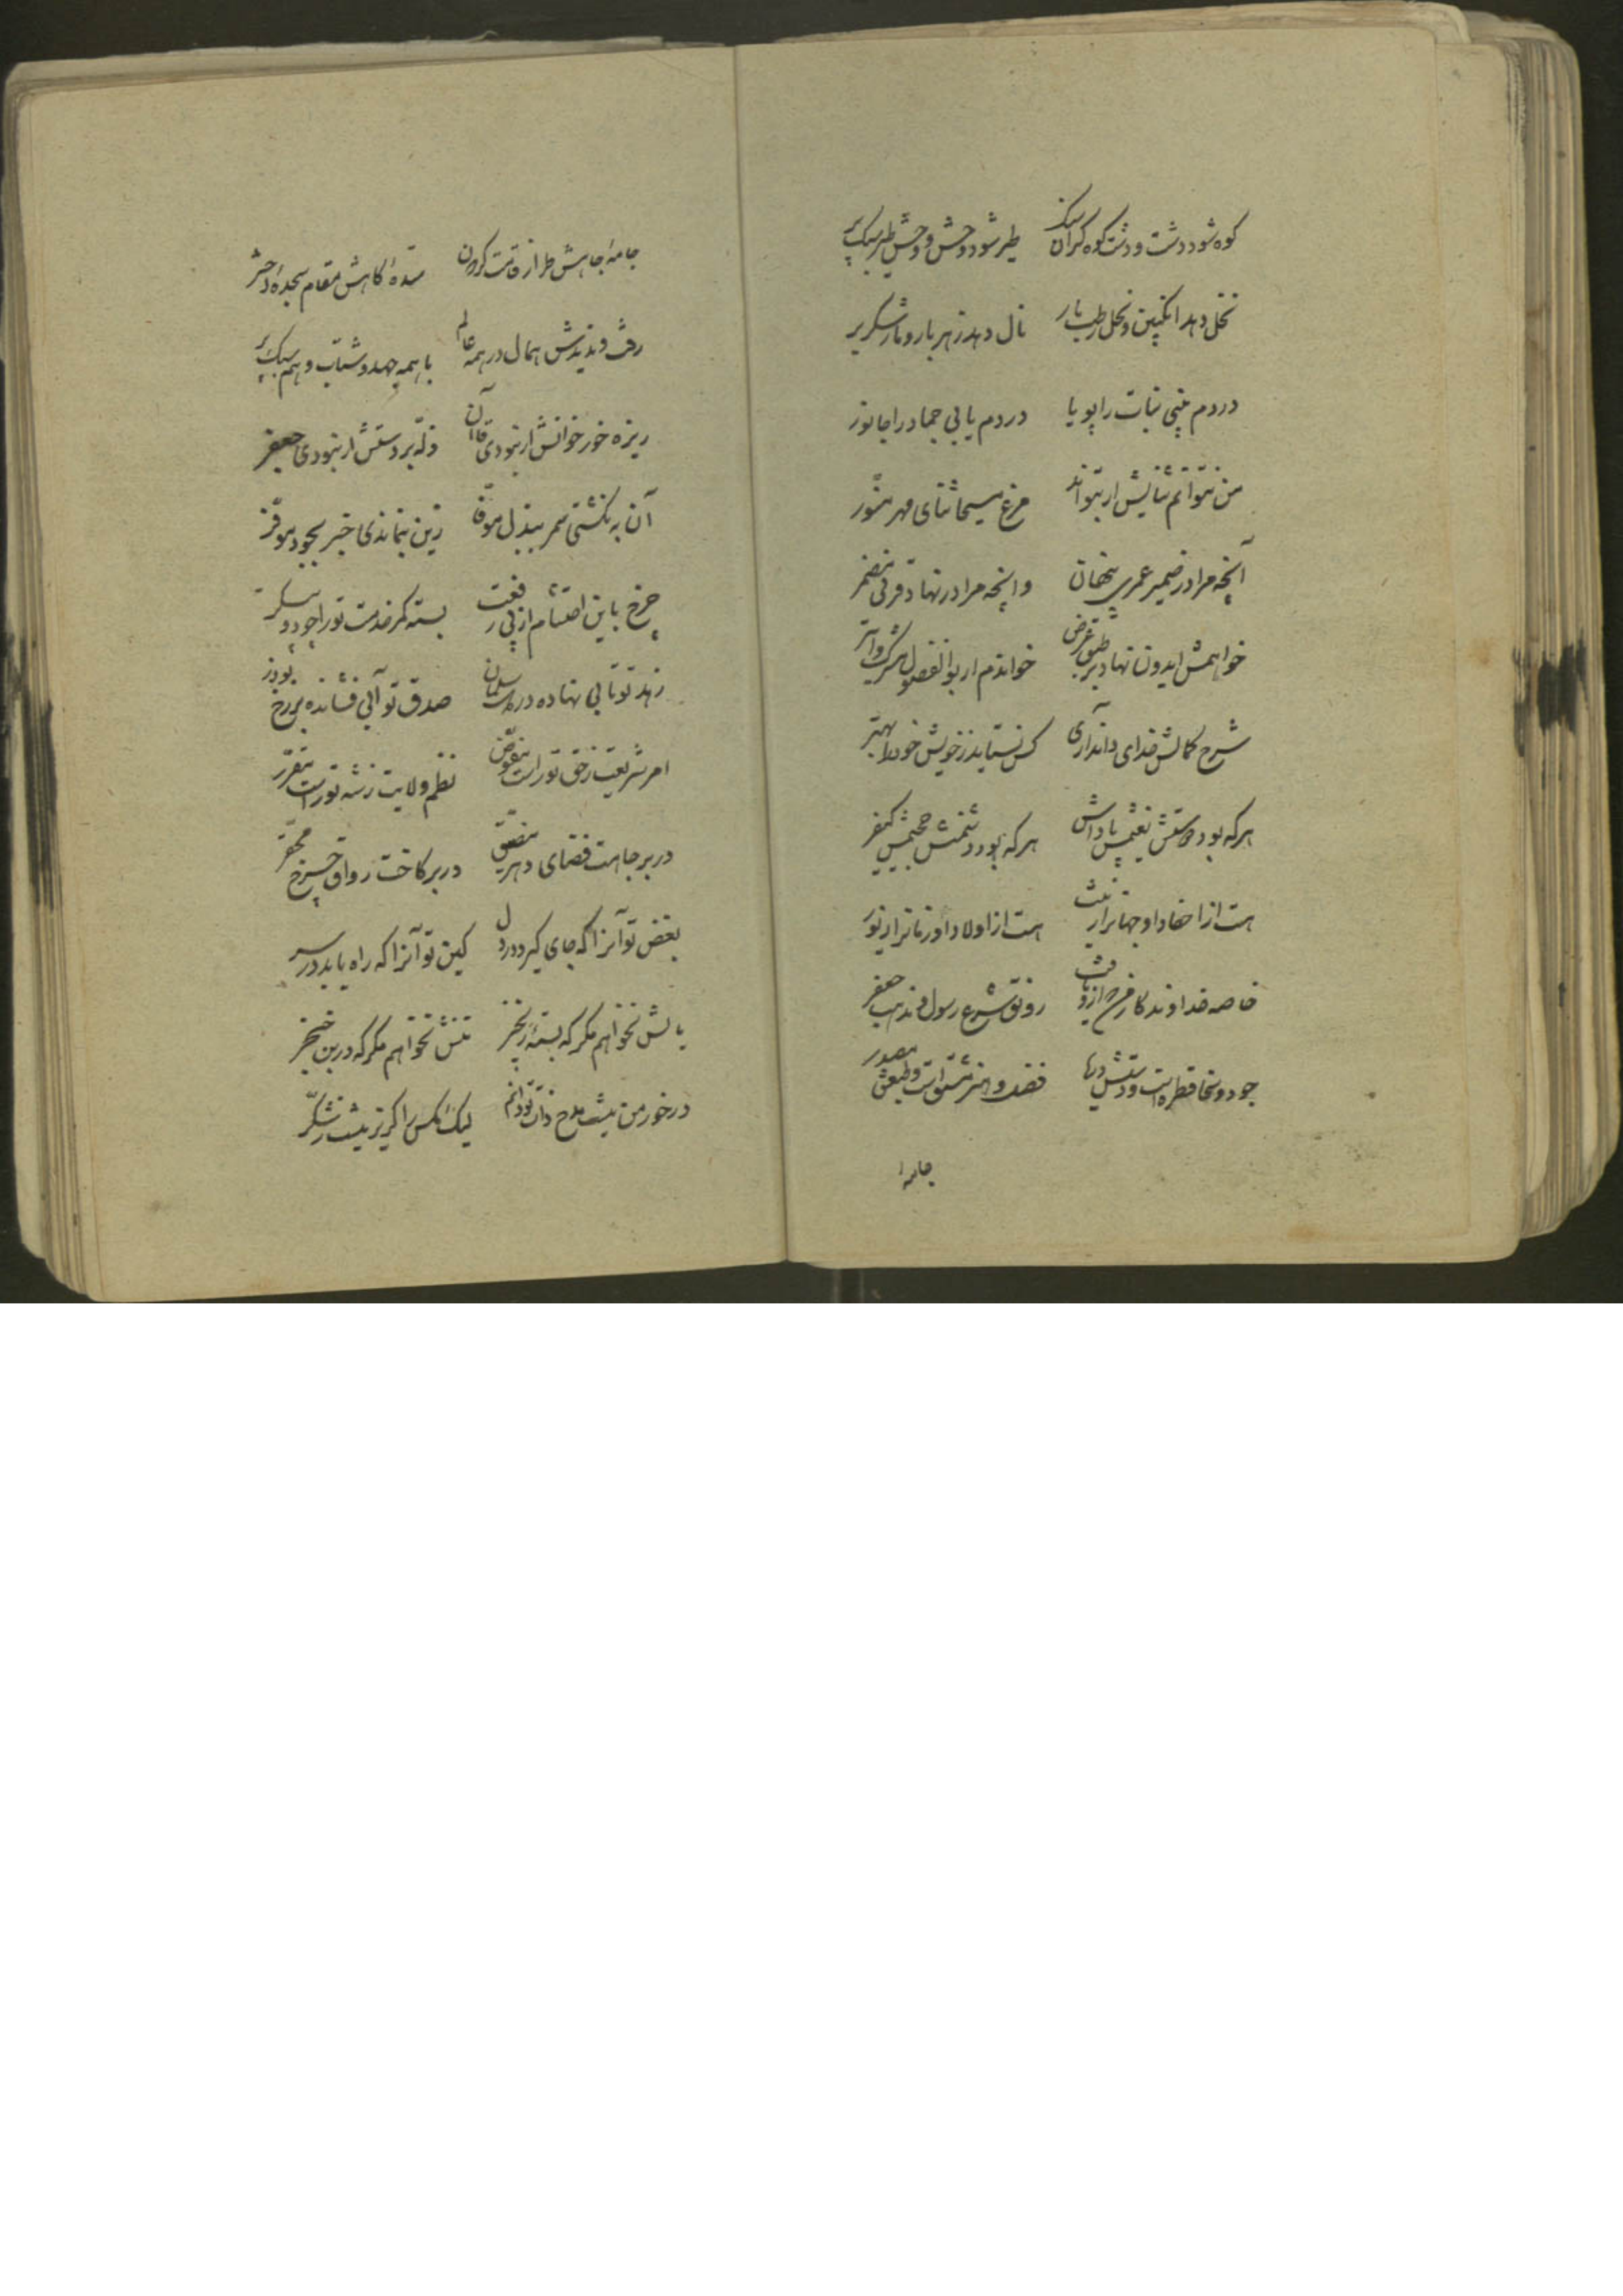 کوه شود دشت و دشت کوه کران سنک طیر شود وحش و وحش طیر سبک پر
نخل دهد انکبین و نحل رطب بار نال دهد زهر بار و مار شکر بر
در دم بینی نبات را پویا در دم یابی جماد را جانور
من نتوانم ثنایش ار بتواند مرغ مسیحا ثنای مهر منور
آنچه مرا در ضمیر عمری پنهان وانچه مرا در نهاد قرنی مضمر
خواهمش ایدون نهاد بر طبق عرض خواندم ار بوالفضول
شرح کمالش خدای داند آری کس نستاید ز خویش خود را بهتر
هرکه بود دوستش نعیمش پاداش هرکه بود دشمنش جحیمش کیفر
هست از احفاد او جهانرا زینت هست از اولاد او زمانرا زیور
خاصه خداوندکار فرخ رونق شرع رسول و مذهب جعفر
جود و سخا قطره است و دستش دریا فضل و هنر مشتق است و طبعش مصدر
جامهٔ
جامهٔ جاهش طراز قامت کردون سدهٔ کاهش مقام سجدهٔ اختر
رفت و ندیدش همال در همه عالم با همه جهد و شتاب وهم سبک پر
ریزه خور خوانش ار نبودی قاآن زله بر دستش ار نبودی جعفر
آن به نکشتی سمر ببذل موفا زین بنماندی خبر بجود موفر
چرخ باین احتشام از پی رفعت بسته کمر خدمت تو را چو دو پیکر
زهد تو تابی نهاده در دل سلمان صدق تو آبی فشانده بر رخ بوذر
امر شریعت ز حق تو راست مفوض نظم ولایت ز شه تو راست مقرر
در بر جاهت فضای دهر مضیق در بر کاخت رواق چرخ محقر
بغض تو آنرا که جای کیرد در دل کین تو آنرا که راه یابد در سر
پایش نخواهم مکر که بستهٔ زنجیر تنش نخواهم مکر که در بن خنجر
در خور من نیست مدح ذات تو دانم لیک مکس را کزیر نیست ز شکر